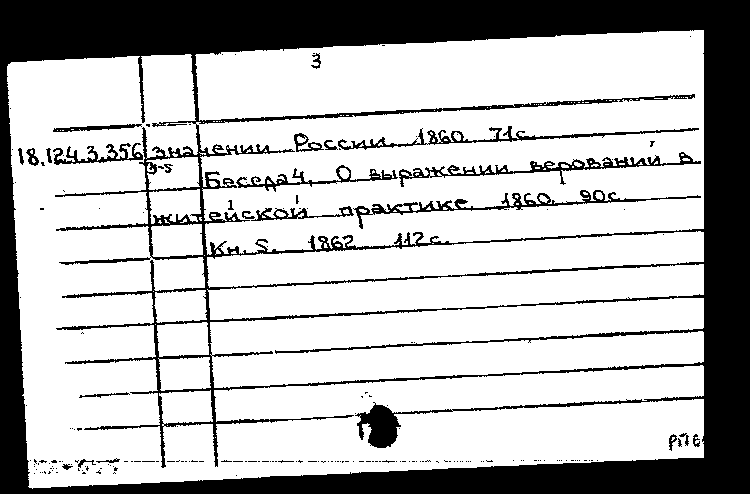 3
18.124.3.356 значении России. 1860. 71с.
3-5
Беседа 4. О выражении верований в
житейской практике. 1860. 90с.
Кн. 5. 1862. 112с.